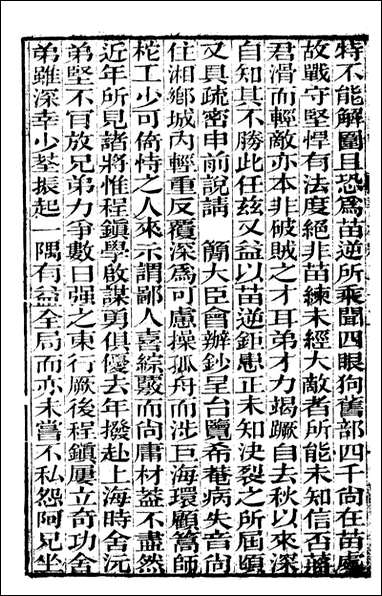 特不能解圍且恐爲苗逆所乘聞四眼狗舊部四千尙在苗處
故戰守堅悍有法度絕非苗練未經大敵者所能未知信否蔣
君滑而輕敵亦本非破賊之才耳弟才力竭蹶自去秋以來深
自知其不勝此任茲又益以苗逆鉅患正未知決裂之所屆頃
又具疏密申前說請　簡大臣會辦鈔呈台覽希菴病失音尙
住湘鄉城內輕重反覆深爲可慮操孤舟而涉巨海環顧篙師
柁工少可倚恃之人來示謂鄙人喜綜覈而尙庸材蓋不盡然
近年所見諸將惟程鎮學啟謀勇俱優去年撥赴上海時舍沅
弟堅不肎放兄弟力爭數日强之東行厥後程鎮屢立奇功舍
弟雖深幸少荃振起一隅有益全局而亦未嘗不私怨阿兄坐